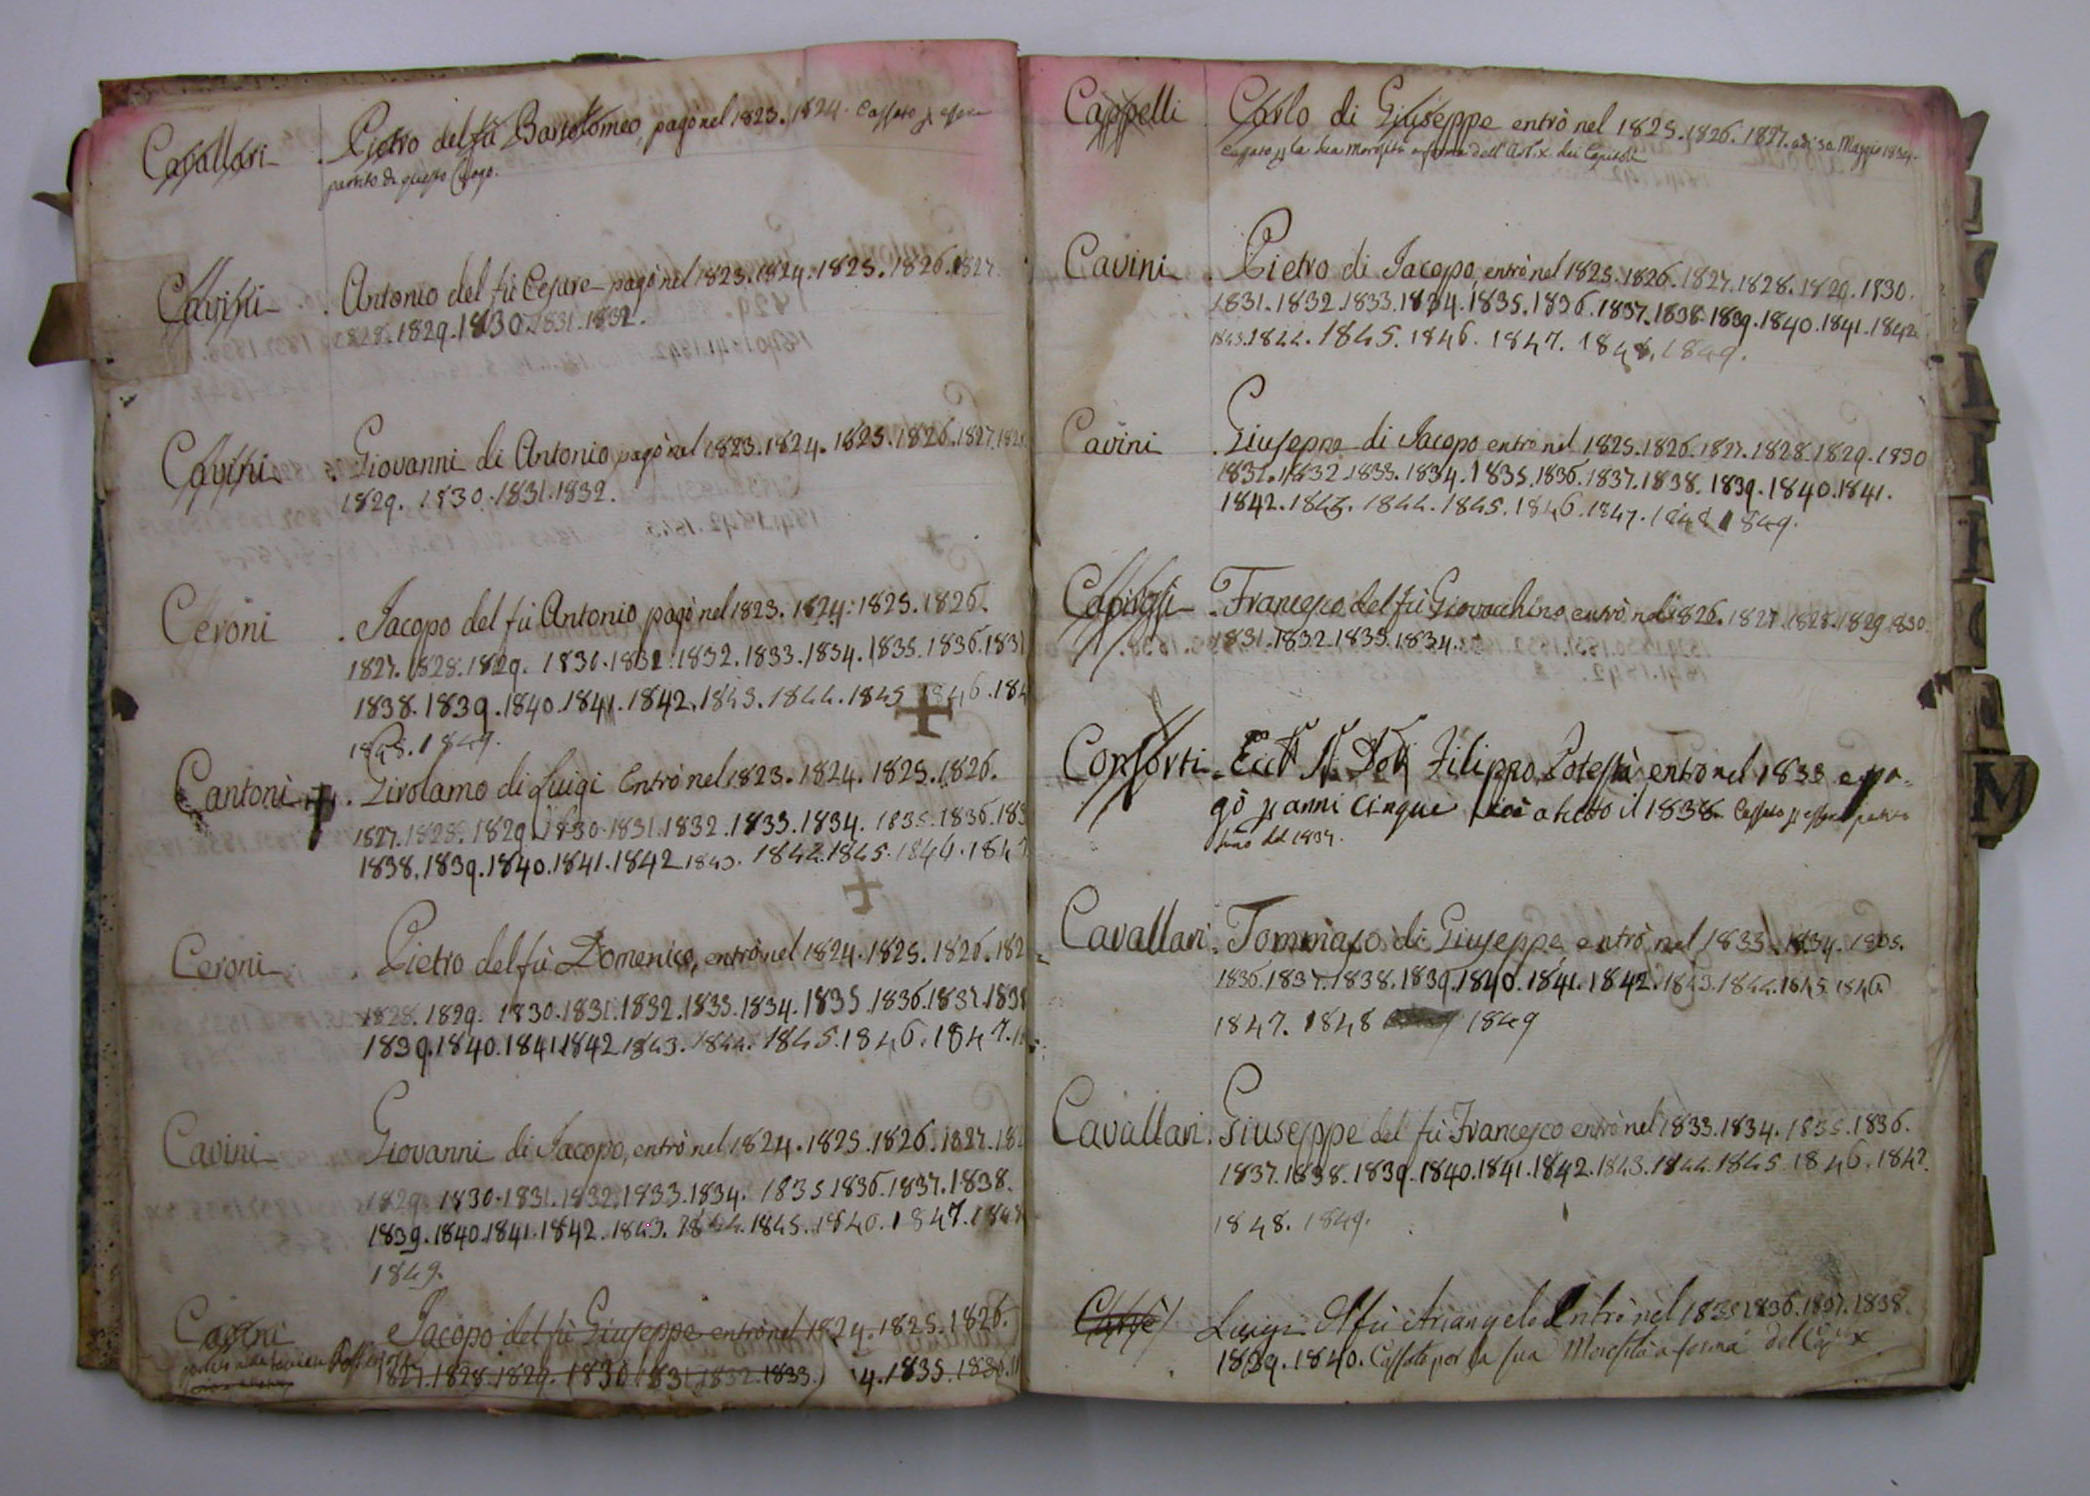 Cavallari . Pietro del fù Bartolomeo, pagò nel 1823. 1824. Cassato p essere
partito da questo Luogo.
Cavini . Antonio del fù Cesare pagò nel 1823. 1824. 1825. 1826. 1827.
1828. 1829. 1830. 1831. 1832.
Cavini . Giovanni di Antonio pagò nel 1823. 1824. 1825. 1826. 1827. 1828
1829. 1830. 1831. 1832.
Ceroni . Jacopo del fù Antonio, pagò nel 1823. 1824. 1825. 1826.
1827. 1828. 1829. 1830. 1831. 1832. 1833. 1834. 1835. 1836. 1837
1838. 1839. 1840. 1841. 1842. 1843. 1844. 1845 1846. 184
1848. 1849.
Cantoni . Girolamo di Luigi Entrò nel 1823. 1824. 1825. 1826.
1827. 1828. 1829. 1830. 1831. 1832. 1833. 1834. 1835. 1836. 183
1838. 1839. 1840. 1841. 1842 1843. 1844. 1845. 1846. 184
Ceroni . Pietro del fù Domenico, entrò nel 1824. 1825. 1826. 182
1828. 1829. 1830. 1831. 1832. 1833. 1834. 1835. 1836. 1837. 1838
1839. 1840. 1841. 1842 1843. 1844. 1845. 1846. 1847.
Cavini Giovanni di Jacopo, entrò nel 1824. 1825. 1826. 1827. 182
1829. 1830. 1831. 1832. 1833. 1834. 1835 1836. 1837. 1838.
1839. 1840. 1841. 1842. 1843. 1844. 1845. 1846. 1847. 1848
1849.
Cavini Jacopo del fù Giuseppe entrò nel 1824. 1825. 1826.
1827. 1828. 1829. 1830 1831 1832. 1833. 4. 1835. 1836.
Cappelli . Carlo di Giuseppe entrò nel 1825. 1826. 1827. adi 30 Maggio 1834.
Cassato p la sua Morosità a forma dell'Art. X. dei Capitoli
Cavini . Pietro di Jacopo, entrò nel 1825. 1826. 1827. 1828. 1829. 1830.
1831. 1832. 1833. 1834. 1835. 1836. 1837. 1838. 1839. 1840. 1841. 1842
1843. 1844. 1845. 1846. 1847. 1848. 1849.
Cavini . Giuseppe di Jacopo, entrò nel 1825. 1826. 1827. 1828. 1829. 1830
1831. 1832. 1833. 1834. 1835. 1836. 1837. 1838. 1839. 1840. 1841.
1842. 1843. 1844. 1845. 1846. 1847. 1848 1849.
. Francesco del fù Giovacchino entrò nel 1826. 1827. 1828. 1829. 1830.
1831. 1832. 1833. 1834.
Conforti . Filippo, Potestà, entrò nel 1833 e pa-
gò p anni Cinque cioè a tutto il 1838. Cassato p essere partito
1834.
Cavallari . Tommaso di Giuseppe, entrò nel 1833. 1834. 1835.
1836. 1837. 1838. 1839. 1840. 1841. 1842. 1843. 1844. 1845 1846.
1847. 1848 1849
Cavallari . Giuseppe del fù Francesco entrò nel 1833. 1834. 1835. 1836.
1837. 1838. 1839. 1840. 1841. 1842. 1843. 1844. 1845. 1846. 1847.
1848. 1849.
Luigi del fù Arcangelo Entrò nel 1835 1836. 1837. 1838.
1839. 1840. Cassato per la sua Morosità a forma del Cap. X
M